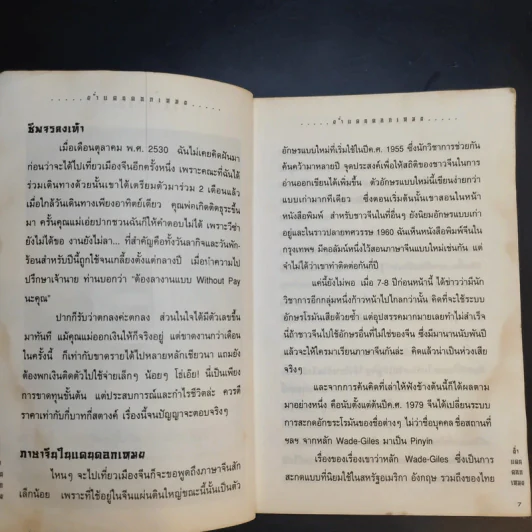 .....ล่าแดดดอกเหมย.....
ชีพจรลงเท้า
เมื่อเดือนตุลาคม พ.ศ. 2530 ฉันไม่เคยคิดฝันมา
ก่อนว่าจะได้ไปเที่ยวเมืองจีนอีกครั้งหนึ่ง เพราะคณะที่ฉันได้
ร่วมเดินทางด้วยนั้นเขาได้เตรียมตัวมาร่วม 2 เดือนแล้ว
เมื่อใกล้วันเดินทางเพียงอาทิตย์เดียว คุณพ่อเกิดติดธุระขึ้น
มา ครั้นคุณแม่เอ่ยปากชวนฉันก็ให้คำตอบไม่ได้ เพราะวีซ่า
ยังไม่ได้ขอ งานยังไม่ลา... ที่สำคัญคือทั้งวันลากิจและวันพัก-
ร้อนสำหรับปีนี้ถูกใช้จนเกลี้ยงตั้งแต่กลางปี เมื่อทำความไป
ปรึกษาเจ้านาย ท่านบอกว่า “ต้องลางานแบบ Without Pay
นะคุณ”
ปากก็รับว่าตกลงค่ะตกลง ส่วนในใจได้มีตัวเลขขึ้น
มาทันที แม้คุณแม่ออกเงินให้ก็จริงอยู่ แต่ขาดงานกว่าเดือน
ในครั้งนี้ ก็เท่ากับขาดรายได้ไปหลายหลักเชียวนา แถมยัง
ต้องพกเงินติดตัวไปใช้จ่ายเล็กๆ น้อยๆ โธ่เอ๊ย! นี่เป็นเพียง
การขาดทุนขั้นต้น แต่ประสบการณ์และกำไรชีวิตล่ะ ควรตี
ราคาเท่ากับกี่บาทกี่สตางค์ เรื่องนี้จนปัญญาจะตอบจริงๆ
ภาษาจีนในแดนดอกเหมย
ไหนๆ จะไปเที่ยวเมืองจีนก็จะขอพูดถึงภาษาจีนสัก
เล็กน้อย เพราะที่ใช้อยู่ในจีนแผ่นดินใหญ่ขณะนี้นั้นเป็นตัว
อักษรแบบใหม่ที่เริ่มใช้ในปีค.ศ. 1955 ซึ่งนักวิชาการช่วยกัน
ค้นคว้ามาหลายปี จุดประสงค์เพื่อให้สถิติของชาวจีนในการ
อ่านออกเขียนได้เพิ่มขึ้น ตัวอักษรแบบใหม่นี้เขียนง่ายกว่า
แบบเก่ามากทีเดียว ซึ่งตอนเริ่มต้นนั้นเขาสอนในหน้า
หนังสือพิมพ์ สำหรับชาวจีนในที่อื่นๆ ยังนิยมอักษรแบบเก่า
อยู่และในราวปลายทศวรรษ 1960 ฉันเห็นหนังสือพิมพ์จีนใน
กรุงเทพฯ มีคอลัมน์หนึ่งไว้สอนภาษาจีนแบบใหม่เช่นกัน แต่
จำไม่ได้ว่าเขาทำติดต่อกันกี่ปี
แค่นี้ยังไม่พอ เมื่อ 7-8 ปีก่อนหน้านี้ ได้ข่าวว่ามีนัก
วิชาการอีกกลุ่มหนึ่งก้าวหน้าไปไกลกว่านั้น คิดที่จะใช้ระบบ
อักษรโรมันเสียด้วยซ้ำ แต่อุปสรรคมากมายเลยทำไม่สำเร็จ
นี่ถ้าชาวจีนไปใช้อักษรอื่นที่ไม่ใช่ของจีน ซึ่งมีมานานนับพันปี
แล้วจะให้ใครมาเรียนภาษาจีนกันล่ะ คิดแล้วน่าเป็นห่วงเสีย
จริงๆ
และจากการค้นคิดที่เล่าให้ฟังข้างต้นนี้ก็ได้ผลตาม
มาอย่างหนึ่ง คือนับตั้งแต่ต้นปีค.ศ. 1979 จีนได้เปลี่ยนระบบ
การสะกดอักขระโรมันของชื่อต่างๆ ไม่ว่าชื่อบุคคล ชื่อสถานที่
ฯลฯ จากหลัก Wade-Giles มาเป็น Pinyin
เรื่องของเรื่องเขาว่าหลัก Wade-Giles ซึ่งเป็นการ
สะกดแบบที่นิยมใช้ในสหรัฐอเมริกา อังกฤษ รวมถึงของไทย
7